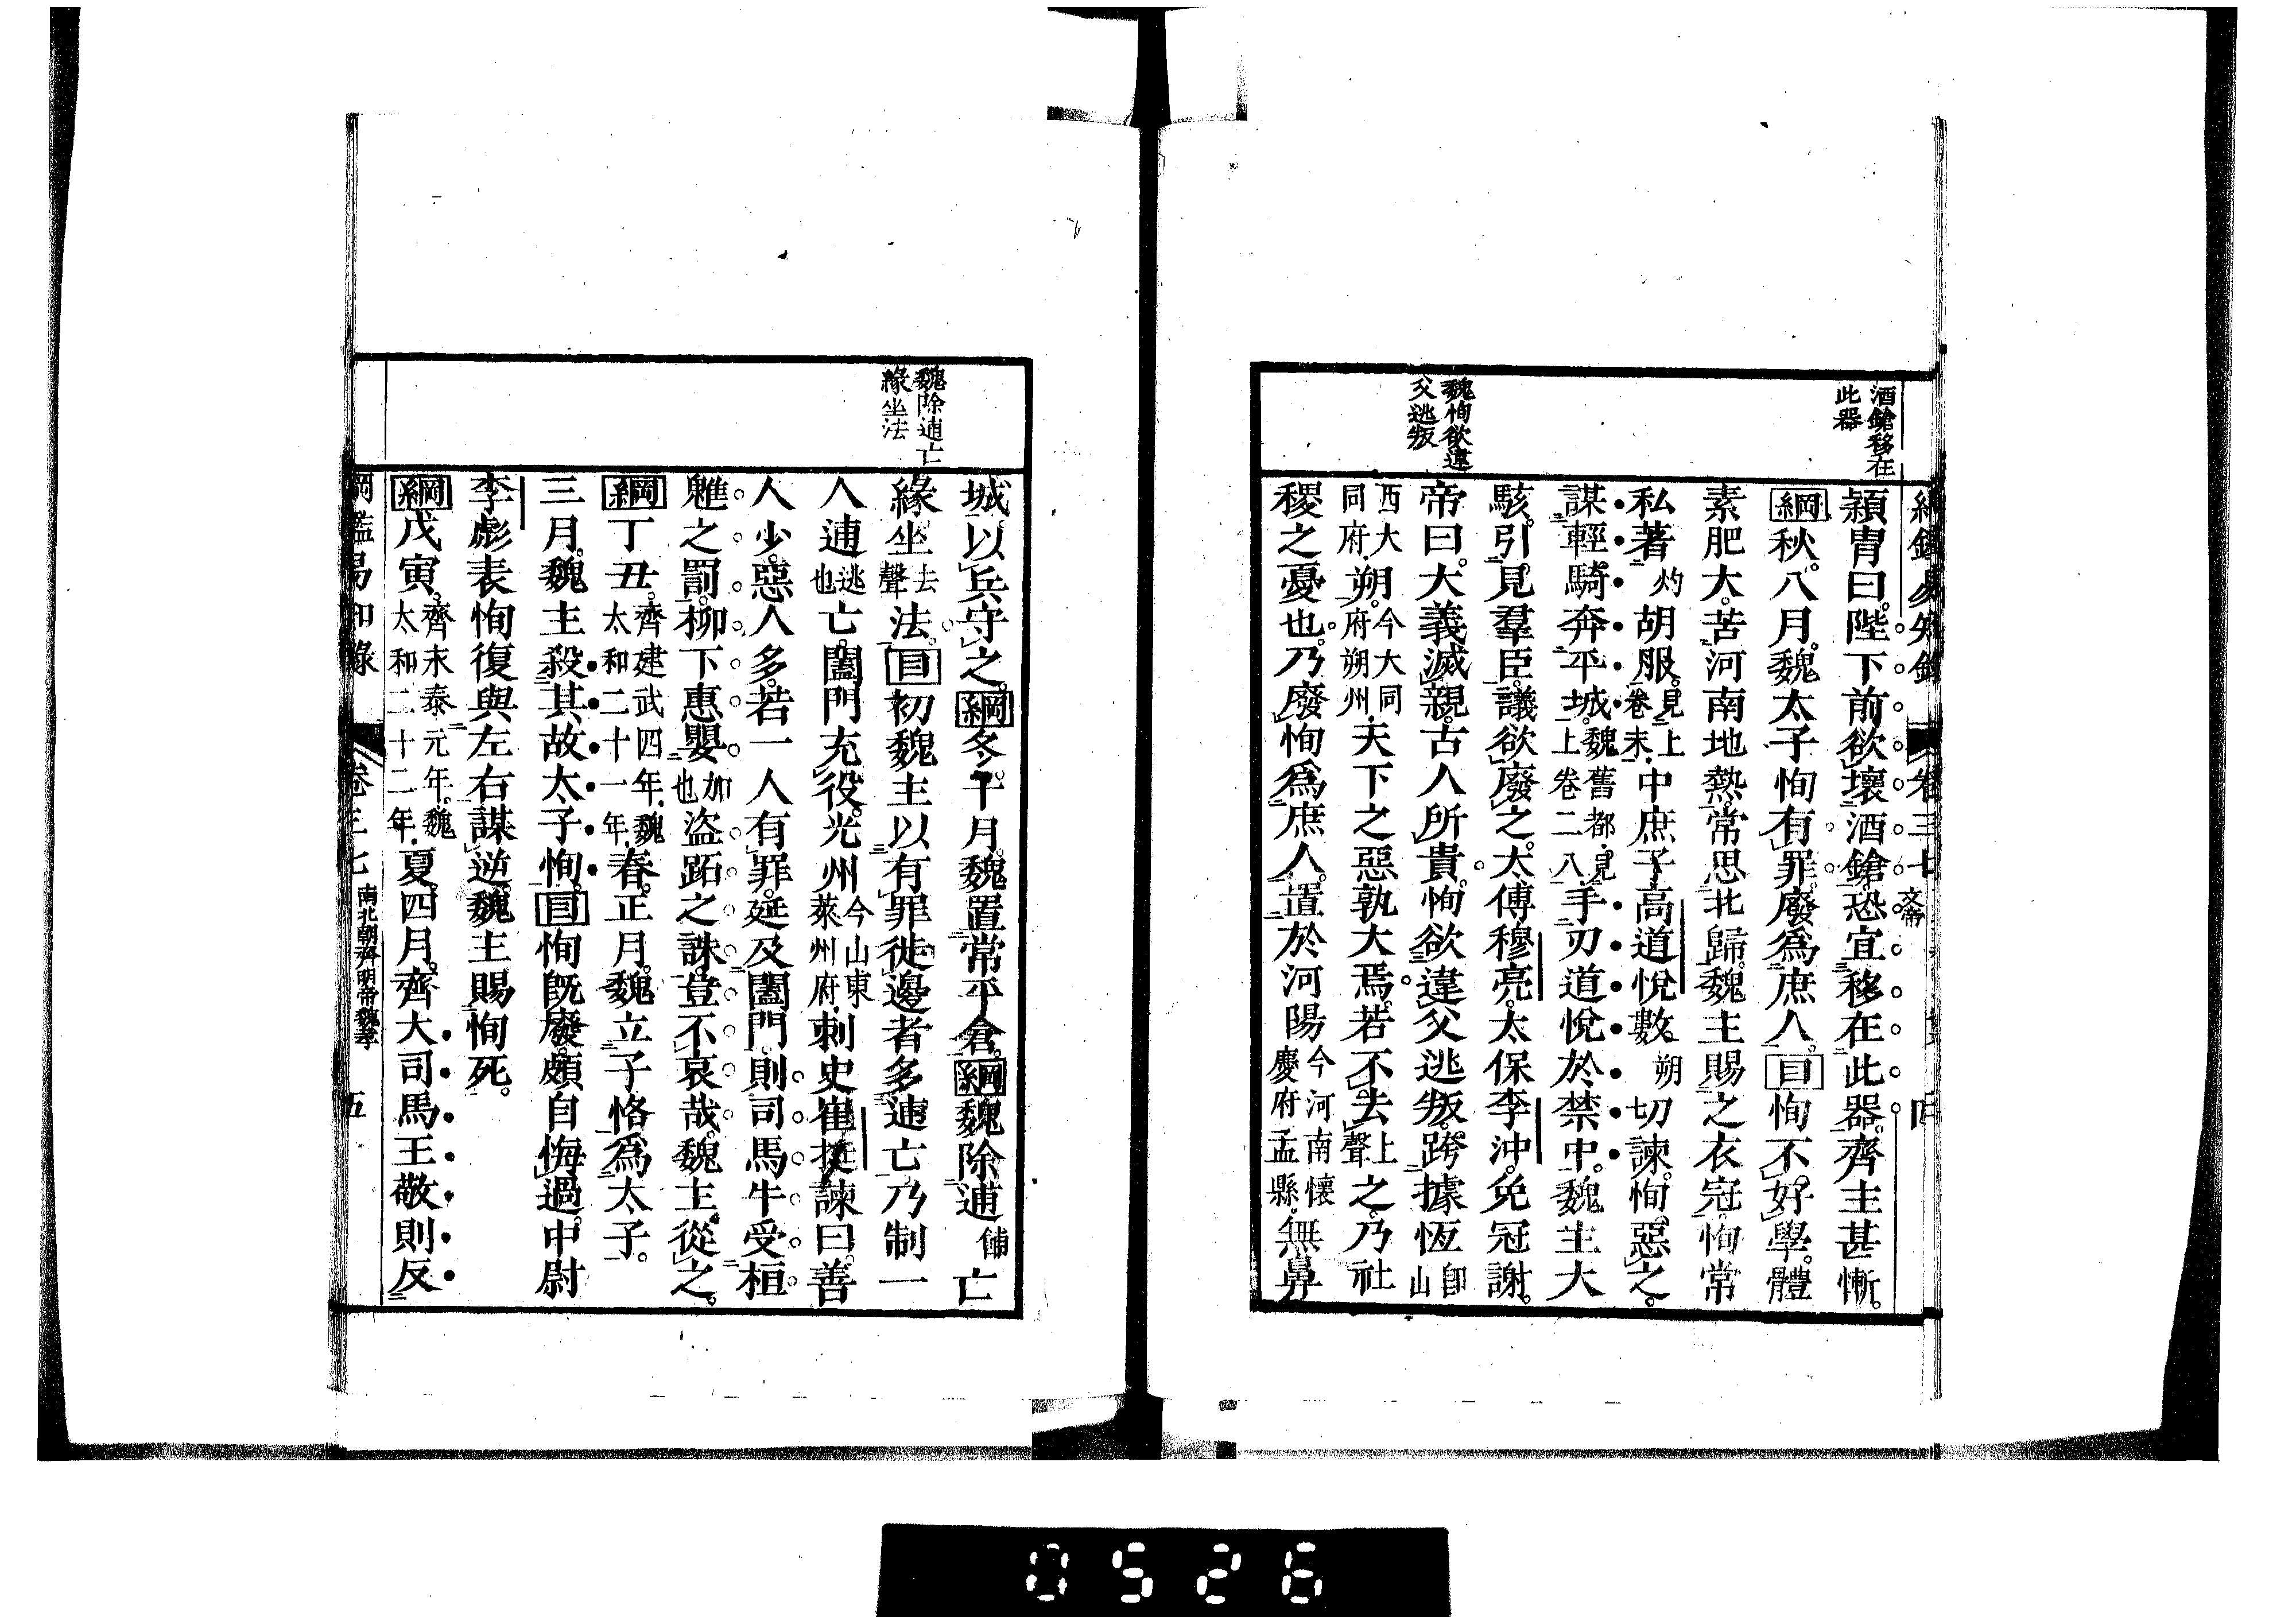 酒鎗移在
此器
魏恂欲違
父逃叛
綱鑑易知錄 卷三七
穎胄曰。陛下前欲壞酒鎗。恐宜移在此器。齊主甚慚。
綱秋。八月。魏太子恂有罪。廢爲庶人。目恂不好學。體
素肥大。苦河南地熱。常思北歸。魏主賜之衣冠。恂常
私著灼胡服。見上卷末。中庶子高道悅數朔切諫。恂惡之。
謀輕騎奔平城。魏舊都。見上卷二八。手刃道悅於禁中。魏主大
駭。引見羣臣。議欲廢之。太傅穆亮。太保李沖。免冠謝。
帝曰。大義滅親。古人所貴。恂欲違父逃叛。跨據恆卽山
西大同府。朔。今大同府朔州。天下之惡孰大焉。若不去上聲之。乃社
稷之憂也。乃廢恂爲庶人。置於河陽今河南懷慶府孟縣。無鼻
魏除逋亡
緣坐法
城。以兵守之。綱冬。十月。魏置常平倉。綱魏除逋餔亡
緣坐去聲法。目初魏主以有罪徙邊者多逋亡。乃制一
人逋逃也亡。闔門充役。光州今山東萊州府。刺史崔挺諫曰。善
人少。惡人多。若一人有罪。延及闔門。則司馬牛受桓
魋之罰。柳下惠嬰加也盜跖之誅。豈不哀哉。魏主從之。
綱丁丑。齊建武四年。魏太和二十一年。春。正月。魏立子恪爲太子。
三月。魏主殺其故太子恂。目恂旣廢。頗自悔過。中尉
李彪表恂復與左右謀逆。魏主賜恂死。
綱戊寅。齊末泰元年。魏太和二十二年。夏。四月。齊大司馬王敬則反
綱鑑易知錄 卷三七 南北朝齊明帝魏孝 五
0526